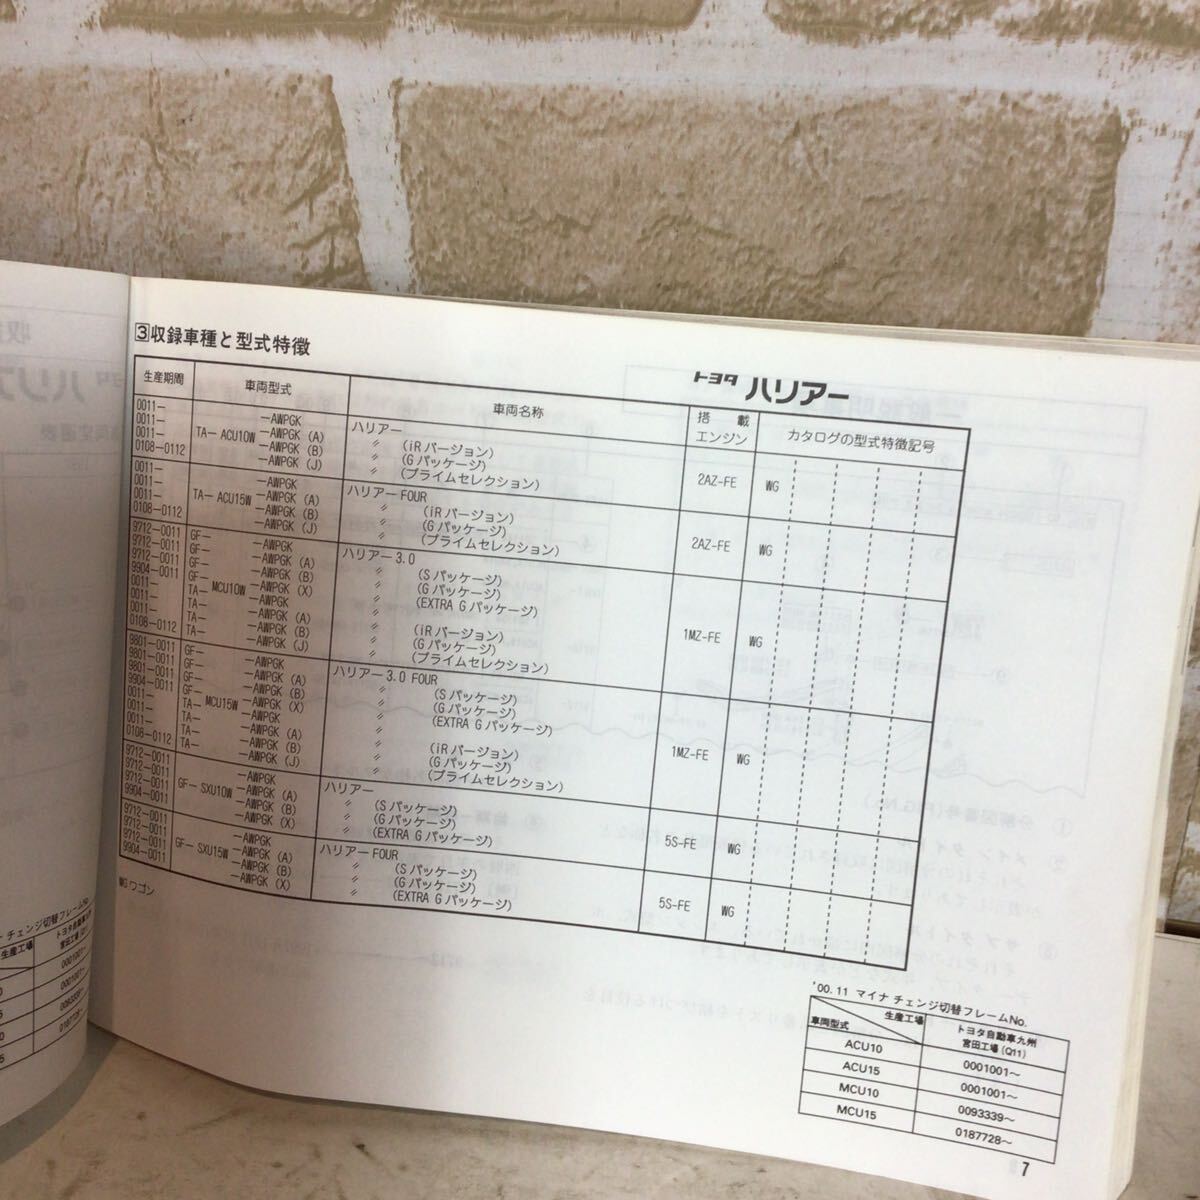 ③収録車種と型式特徴
トヨタ ハリアー
生産期間 車両型式 車両名称 搭載エンジン カタログの型式特徴記号
0011− TA− ACU10W −AWPGK ハリアー 2AZ-FE WG
0011− −AWPGK (A) 〃 (iRバージョン)
0011− −AWPGK (B) 〃 (Gパッケージ)
0108−0112 −AWPGK (J) 〃 (プライムセレクション)
0011− TA− ACU15W −AWPGK ハリアー FOUR 2AZ-FE WG
0011− −AWPGK (A) 〃 (iRバージョン)
0011− −AWPGK (B) 〃 (Gパッケージ)
0108−0112 −AWPGK (J) 〃 (プライムセレクション)
9712−0011 GF− MCU10W −AWPGK ハリアー 3.0 1MZ-FE WG
9712−0011 GF− −AWPGK (A) 〃 (Sパッケージ)
9712−0011 GF− −AWPGK (B) 〃 (Gパッケージ)
9904−0011 GF− −AWPGK (X) 〃 (EXTRA Gパッケージ)
0011− TA− −AWPGK 〃
0011− TA− −AWPGK (A) 〃 (iRバージョン)
0011− TA− −AWPGK (B) 〃 (Gパッケージ)
0108−0112 TA− −AWPGK (J) 〃 (プライムセレクション)
9801−0011 GF− MCU15W −AWPGK ハリアー 3.0 FOUR 1MZ-FE WG
9801−0011 GF− −AWPGK (A) 〃 (Sパッケージ)
9801−0011 GF− −AWPGK (B) 〃 (Gパッケージ)
9904−0011 GF− −AWPGK (X) 〃 (EXTRA Gパッケージ)
0011− TA− −AWPGK 〃
0011− TA− −AWPGK (A) 〃 (iRバージョン)
0011− TA− −AWPGK (B) 〃 (Gパッケージ)
0108−0112 TA− −AWPGK (J) 〃 (プライムセレクション)
9712−0011 GF− SXU10W −AWPGK ハリアー 5S-FE WG
9712−0011 −AWPGK (A) 〃 (Sパッケージ)
9712−0011 −AWPGK (B) 〃 (Gパッケージ)
9904−0011 −AWPGK (X) 〃 (EXTRA Gパッケージ)
9712−0011 GF− SXU15W −AWPGK ハリアー FOUR 5S-FE WG
9712−0011 −AWPGK (A) 〃 (Sパッケージ)
9712−0011 −AWPGK (B) 〃 (Gパッケージ)
9904−0011 −AWPGK (X) 〃 (EXTRA Gパッケージ)
WG ワゴン
'00.11 マイナ チェンジ切替フレームNo.
車両型式 生産工場 トヨタ自動車九州 宮田工場(Q11)
ACU10 0001001〜
ACU15 0001001〜
MCU10 0093339〜
MCU15 0187728〜
7
チェンジ切替フレームNo
生産工場 トヨタ自動車九州
宮田工場(Q11)
0001001〜
0001001〜
0093339〜
0187728〜